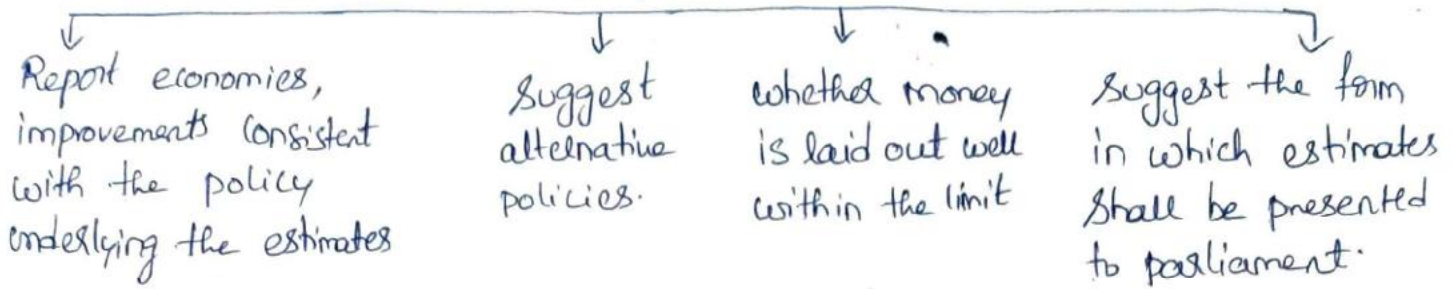 Report economies,
improvements consistent
with the policy
underlying the estimates
Suggest
alternative
policies.
whether money
is laid out well
within the limit
Suggest the form
in which estimates
shall be presented
to parliament.